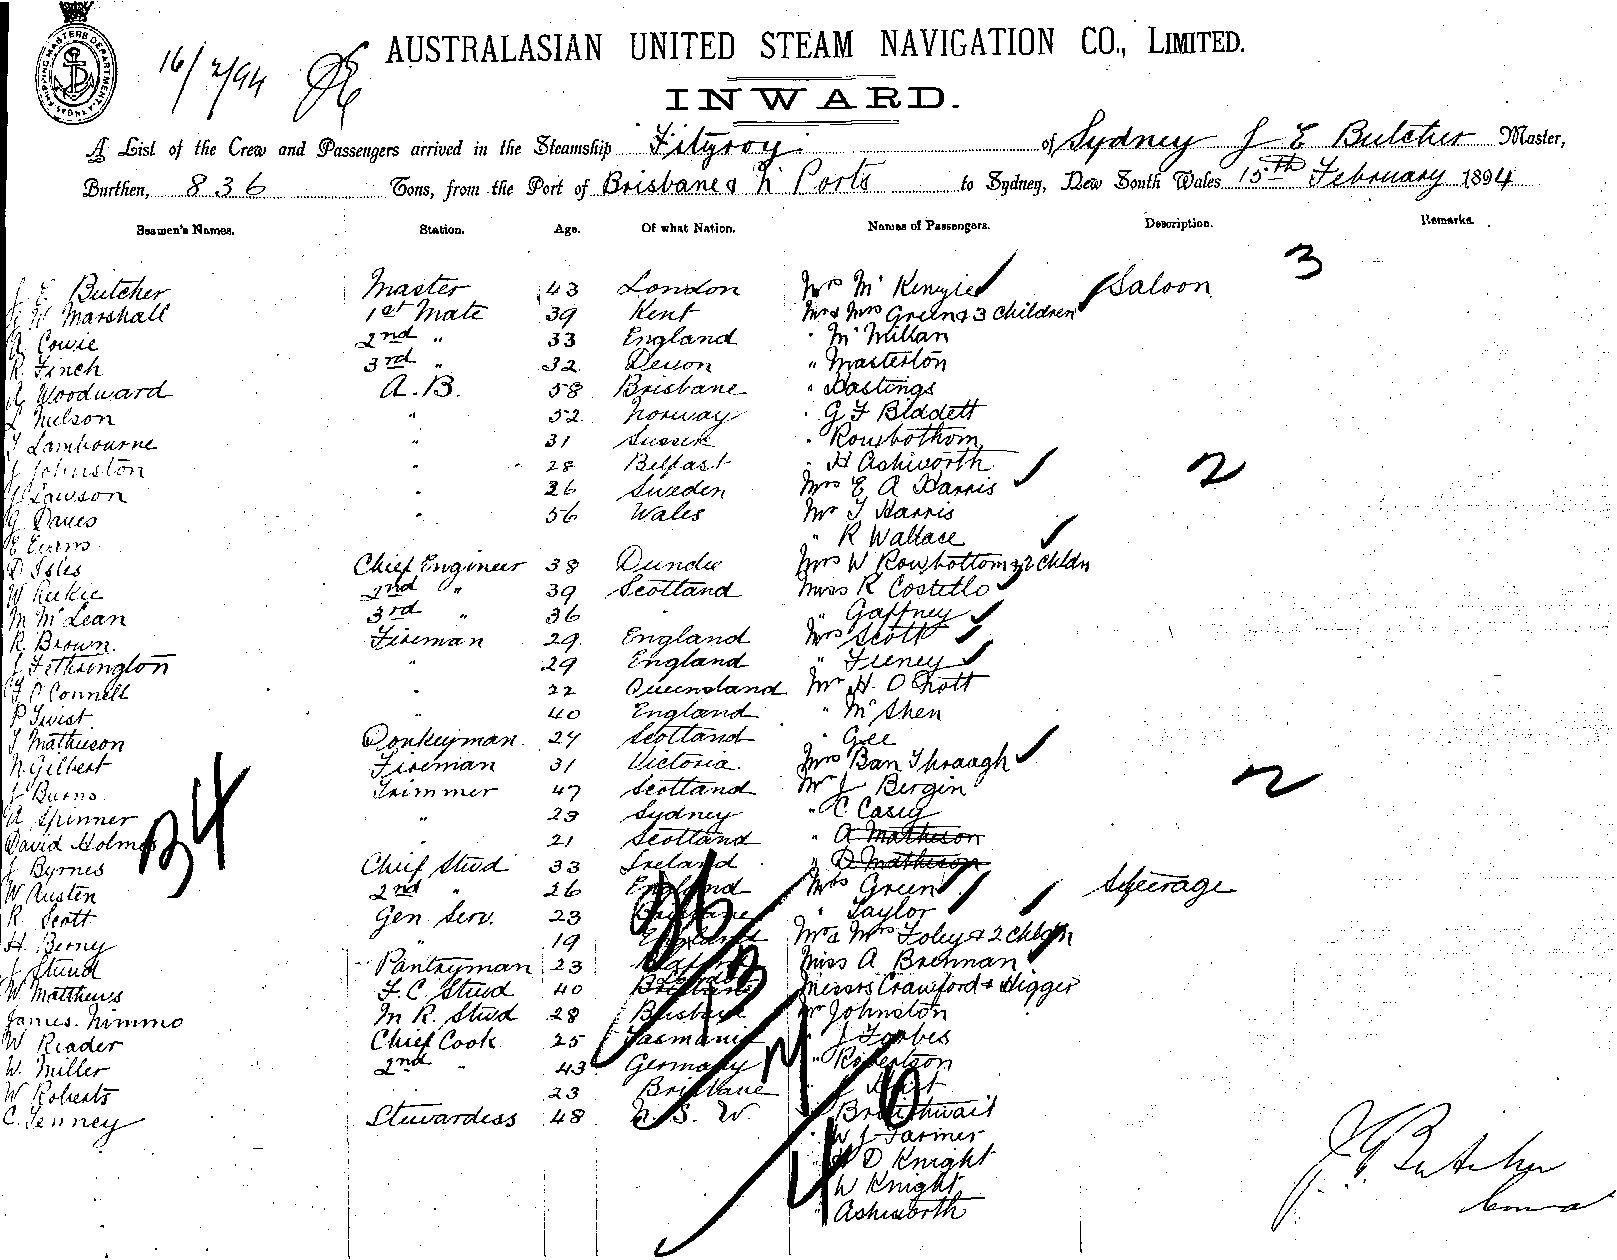 16/2/94
AUSTRALASIAN UNITED STEAM NAVIGATION CO., LIMITED.
INWARD.
A List of the Crew and Passengers arrived in the Steamship Fitzroy of Sydney J E Butcher Master,
Burthen, 836 Tons, from the Port of Brisbane & N Ports to Sydney, New South Wales 15th February 1894
Seamen's Names. Station. Age. Of what Nation. Names of Passengers. Description. Remarks.
3
J E Butcher Master 43 London Mrs McKenzie Saloon
Marshall 1st Mate 39 Kent Mr & Mrs Green & 3 Children
A Cowie 2nd " 33 England " McMillan
R Finch 3rd " 32 Devon " Masterton
A Woodward A.B. 58 Brisbane " Hastings
L Nelson " 52 Norway " G F Biddett
T Lambourne " 31 Sussex " Rowbothom
J Johnston " 28 Belfast " H Ashworth 2
Lawson " 26 Sweden Mrs E A Harris
G Davies " 56 Wales Mr T Harris
E Evans " R Wallace
D Isles Chief Engineer 38 Dundee Mrs W Rowbottom & 2 Chldn
W Reekie 2nd " 39 Scotland Miss R Costello
M McLean 3rd " 36 " " Gaffney
R Brown Fireman 29 England Mrs Scott
J Fethrington " 29 England " Feeney
O'Connell " 22 Queensland Mr H. O'Knott
P Twist " 40 England " McShen
T Mathieson Donkeyman 24 Scotland " Gee
N Gilbert Fireman 31 Victoria Mrs Ban Thraagh
J Burns Trimmer 47 Scotland Mr J Bergin 2
A Spinner " 23 Sydney " C Casey
David Holmes " 21 Scotland " A Matheson
J Byrnes Chief Stwd 33 Ireland " D Matheson
W Austen 2nd " 26 England Mrs Green Steerage
R Scott Gen. Serv. 23 Brisbane " Taylor
H. Berny " 19 England Mr & Mrs Foley & 2 Chldn
J Stund Pantryman 23 Miss A Brennan
W Matthews F.C. Stwd 40 Brisbane Messrs Crawford & Higger
James Nimmo M R. Stwd 28 Brisbane Mr Johnston
W Reader Chief Cook 25 Tasmania " J Forbes
W. Miller 2nd " 43 Germany " Robertson
W Roberts 23 Brisbane
C. Tenney Stewardess 48 N. S. W. Brauthwait
W J Farmer
D Knight
W Knight
" Ashworth
34
J. E. Butcher